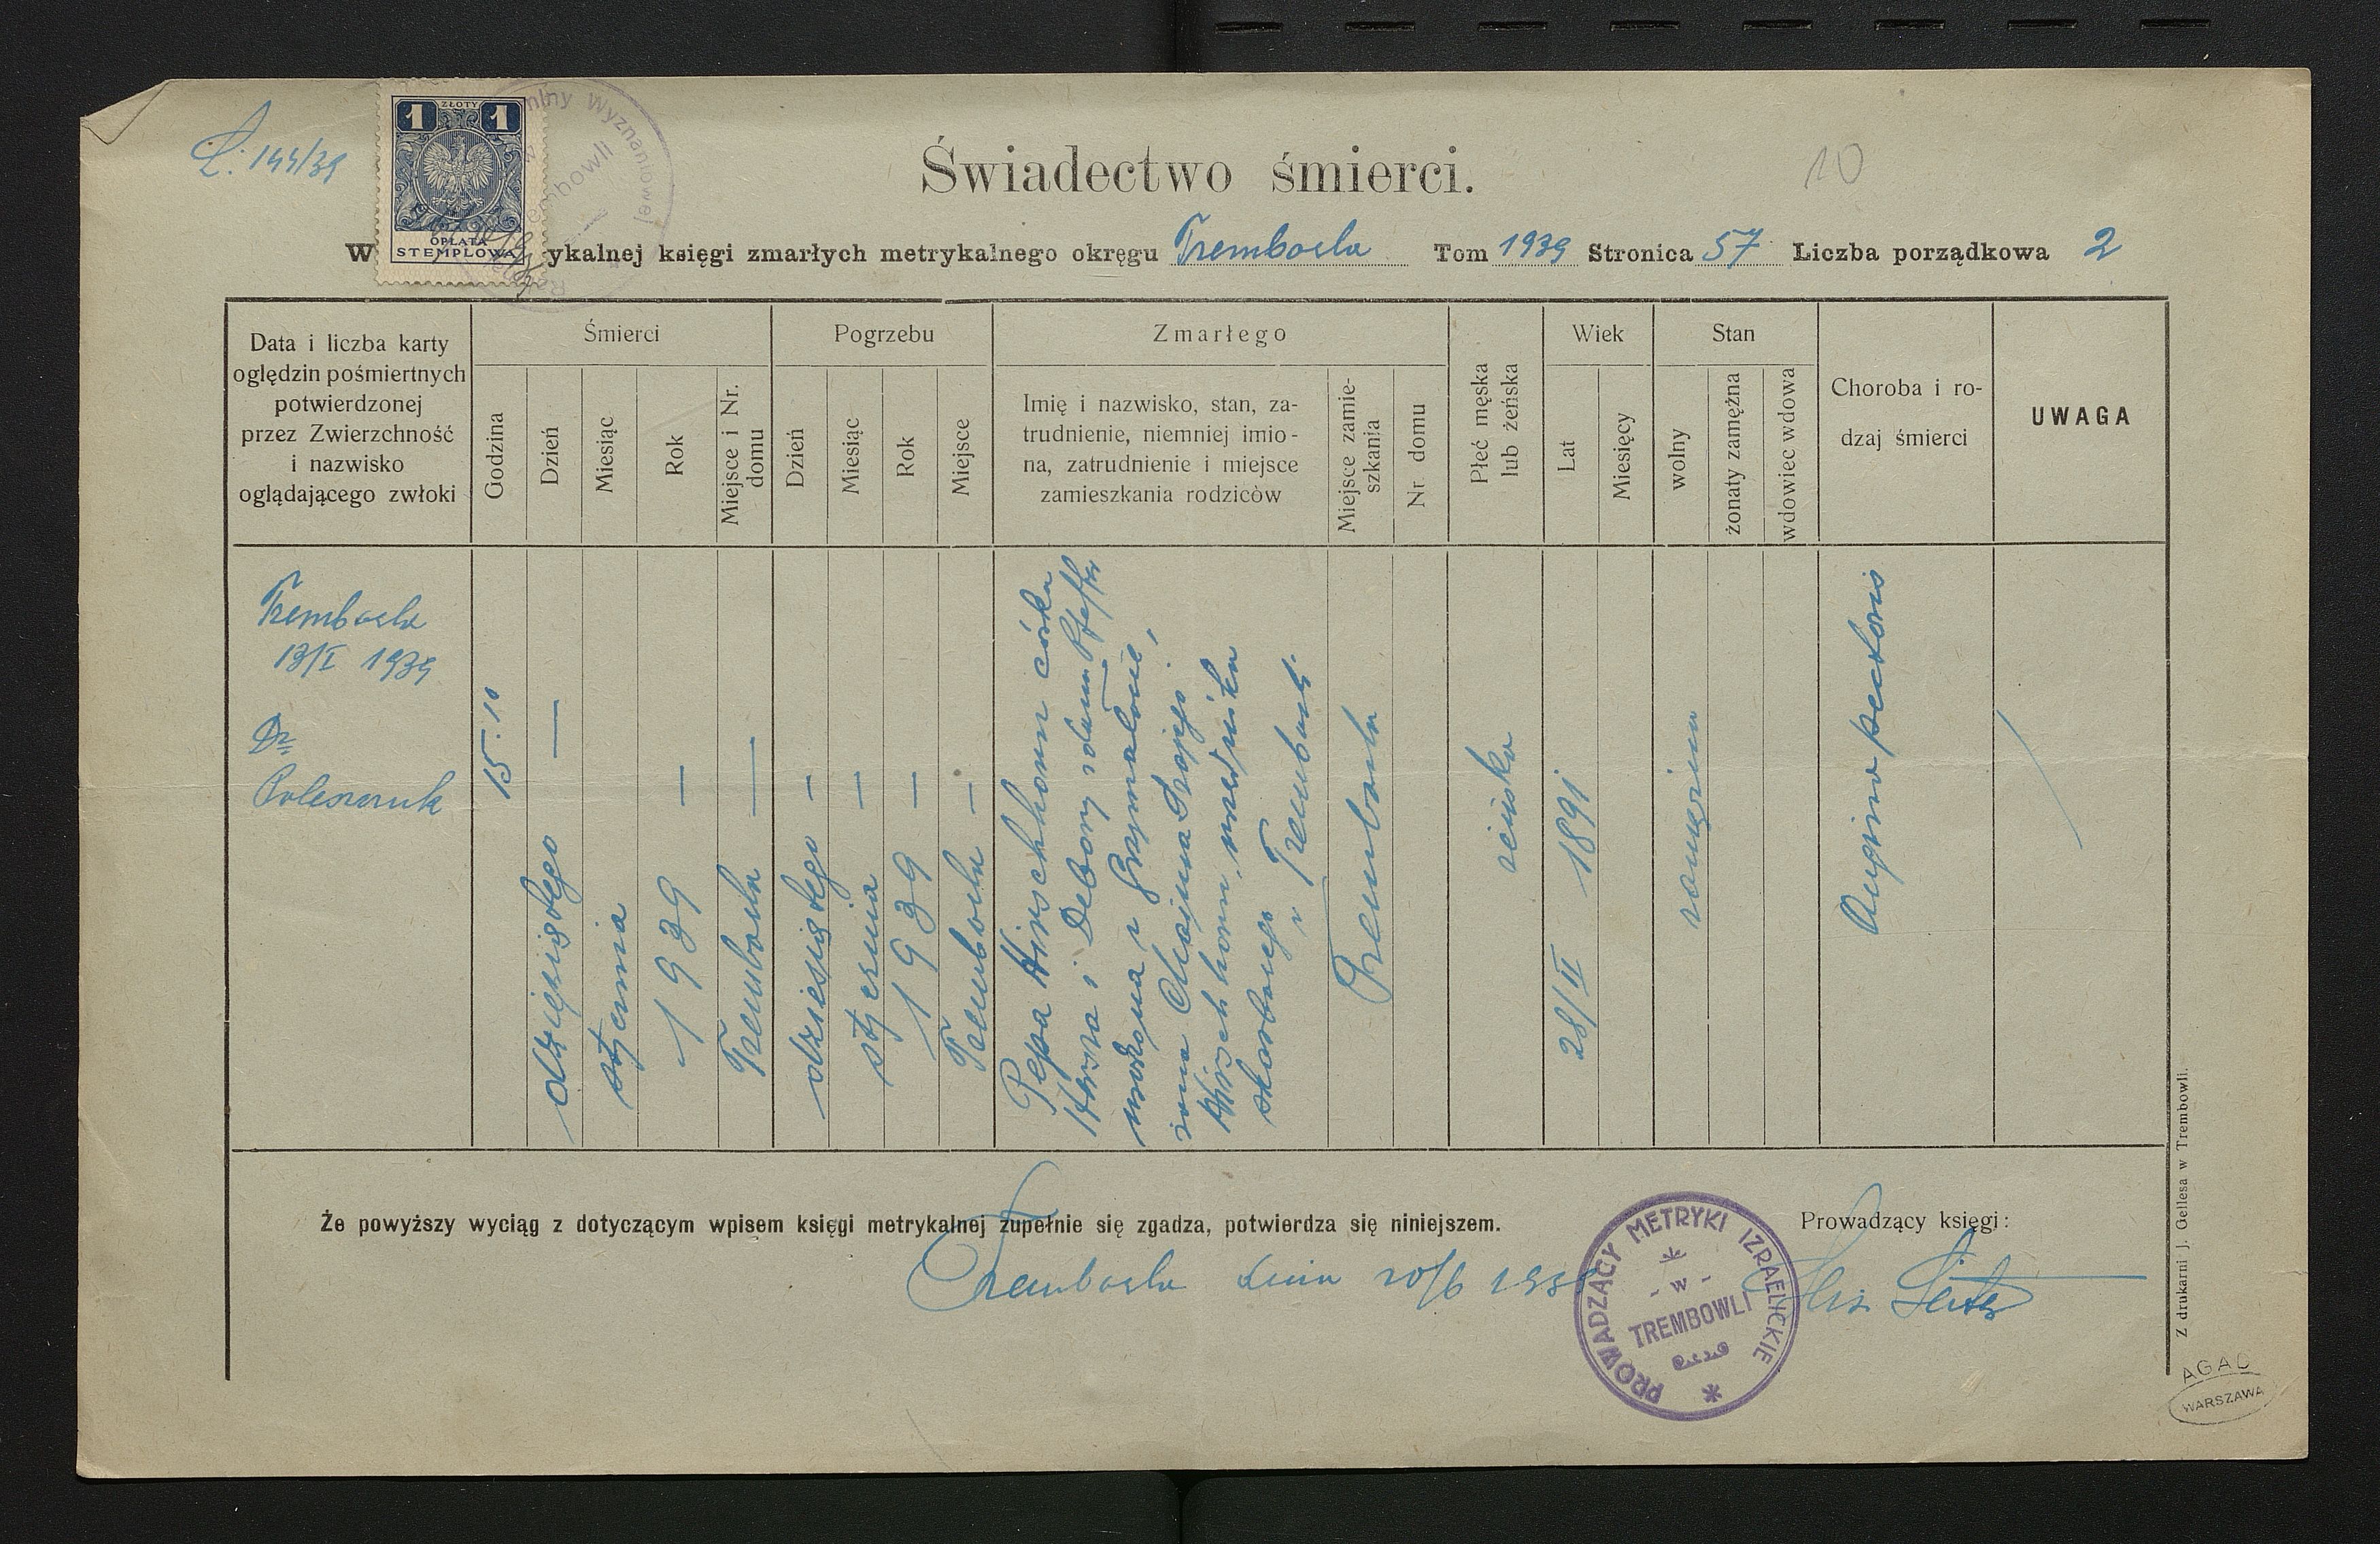 L: 144/39
1 ZŁOTY 1
OPŁATA
STEMPLOWA
Świadectwo śmierci.
10
W ykalnej księgi zmarłych metrykalnego okręgu Trembowla Tom 1939 Stronica 57 Liczba porządkowa 2
Data i liczba karty
oględzin pośmiertnych
potwierdzonej
przez Zwierzchność
i nazwisko
oglądającego zwłoki
Śmierci
Godzina
Dzień
Miesiąc
Rok
Miejsce i Nr.
domu
Pogrzebu
Dzień
Miesiąc
Rok
Miejsce
Zmarłego
Imię i nazwisko, stan, za-
trudnienie, niemniej imio-
na, zatrudnienie i miejsce
zamieszkania rodziców
Miejsce zamie-
szkania
Nr domu
Płeć męska
lub żeńska
Wiek
Lat
Miesięcy
Stan
wolny
żonaty zamężna
wdowiec wdowa
Choroba i ro-
dzaj śmierci
UWAGA
Trembowla
13/I 1939
Dr
Poleszczuk
15.10
dziesiątego —
stycznia
1939 —
Trembowla —
dziesiątego —
stycznia —
1939 —
Trembowla —
Pepa Hirschhorn córka
Hirsza i Debory z domu Pfeffer
urodzona w Grzymałowie,
żona Chaima
Hirschhorn, urzędnika
skarbowego w Trembowli.
Trembowla
żeńska
28/II 1891
zamężna
Angina pectoris
Że powyższy wyciąg z dotyczącym wpisem księgi metrykalnej zupełnie się zgadza, potwierdza się niniejszem.
Prowadzący księgi:
Trembowla dnia 20/6 193
PROWADZĄCY METRYKI IZRAELICKIE
- W -
TREMBOWLI
Z drukarni J. Gellesa w Trembowli.
AGAD
WARSZAWA